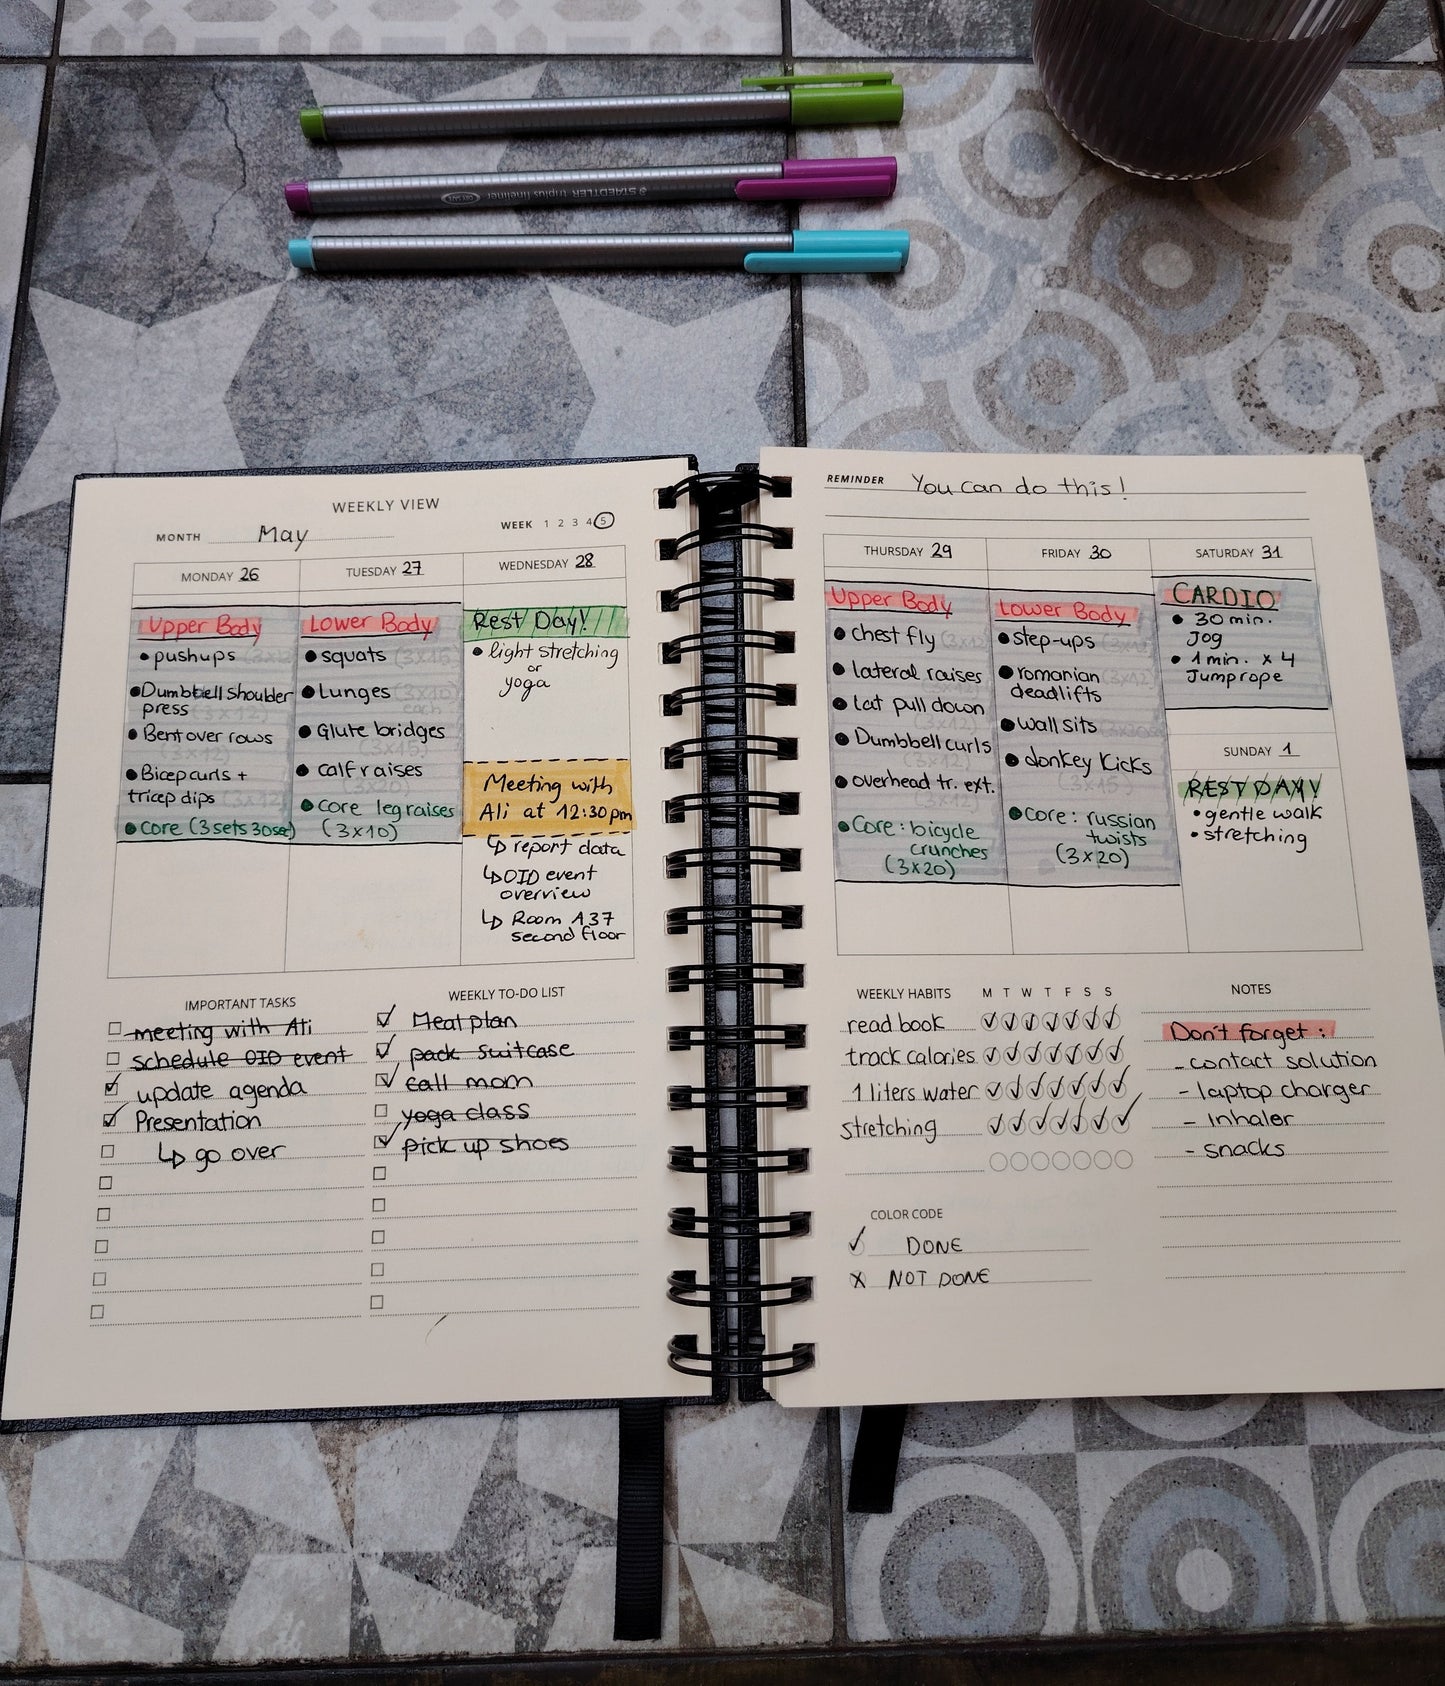 STAEDTLER triplus fineliner
WEEKLY VIEW
MONTH May
WEEK 1 2 3 4 5
MONDAY 26
Upper Body
• pushups (3x12)
• Dumbbell shoulder
press (3x12)
• Bent over rows
(3x12)
• Bicep curls +
tricep dips (3x12)
• core (3 sets 30sec)
TUESDAY 27
Lower Body
• squats (3x15)
• Lunges (3x10)
each
• Glute bridges
(3x15)
• calf raises
(3x20)
• core leg raises
(3x10)
WEDNESDAY 28
Rest Day!
• light stretching
or
yoga
Meeting with
Ali at 12:30pm
↳ report data
↳ OID event
overview
↳ Room A37
second floor
IMPORTANT TASKS
meeting with Ali
schedule OID event
update agenda
Presentation
↳ go over
WEEKLY TO-DO LIST
Meal plan
pack suitcase
call mom
yoga class
pick up shoes
REMINDER You can do this!
THURSDAY 29
Upper Body
• chest fly (3x12)
• lateral raises
• Lat pull down
(3x12)
• Dumbbell curls
(3x12)
• overhead tr. ext.
(3x12)
• Core: bicycle
crunches
(3x20)
FRIDAY 30
Lower Body
• step-ups
• romanian (3x12)
deadlifts
• wall sits
• donkey kicks
(3x15)
• core: russian
twists
(3x20)
SATURDAY 31
CARDIO
• 30 min.
Jog
• 1 min. x 4
Jumprope
SUNDAY 1
REST DAY!
• gentle walk
• stretching
WEEKLY HABITS M T W T F S S
read book ✓ ✓ ✓ ✓ ✓ ✓ ✓
track calories ✓ ✓ ✓ ✓ ✓ ✓ ✓
1 liters water ✓ ✓ ✓ ✓ ✓ ✓ ✓
stretching ✓ ✓ ✓ ✓ ✓ ✓ ✓
COLOR CODE
✓ DONE
x NOT DONE
NOTES
Don't forget:
- contact solution
- laptop charger
- inhaler
- snacks